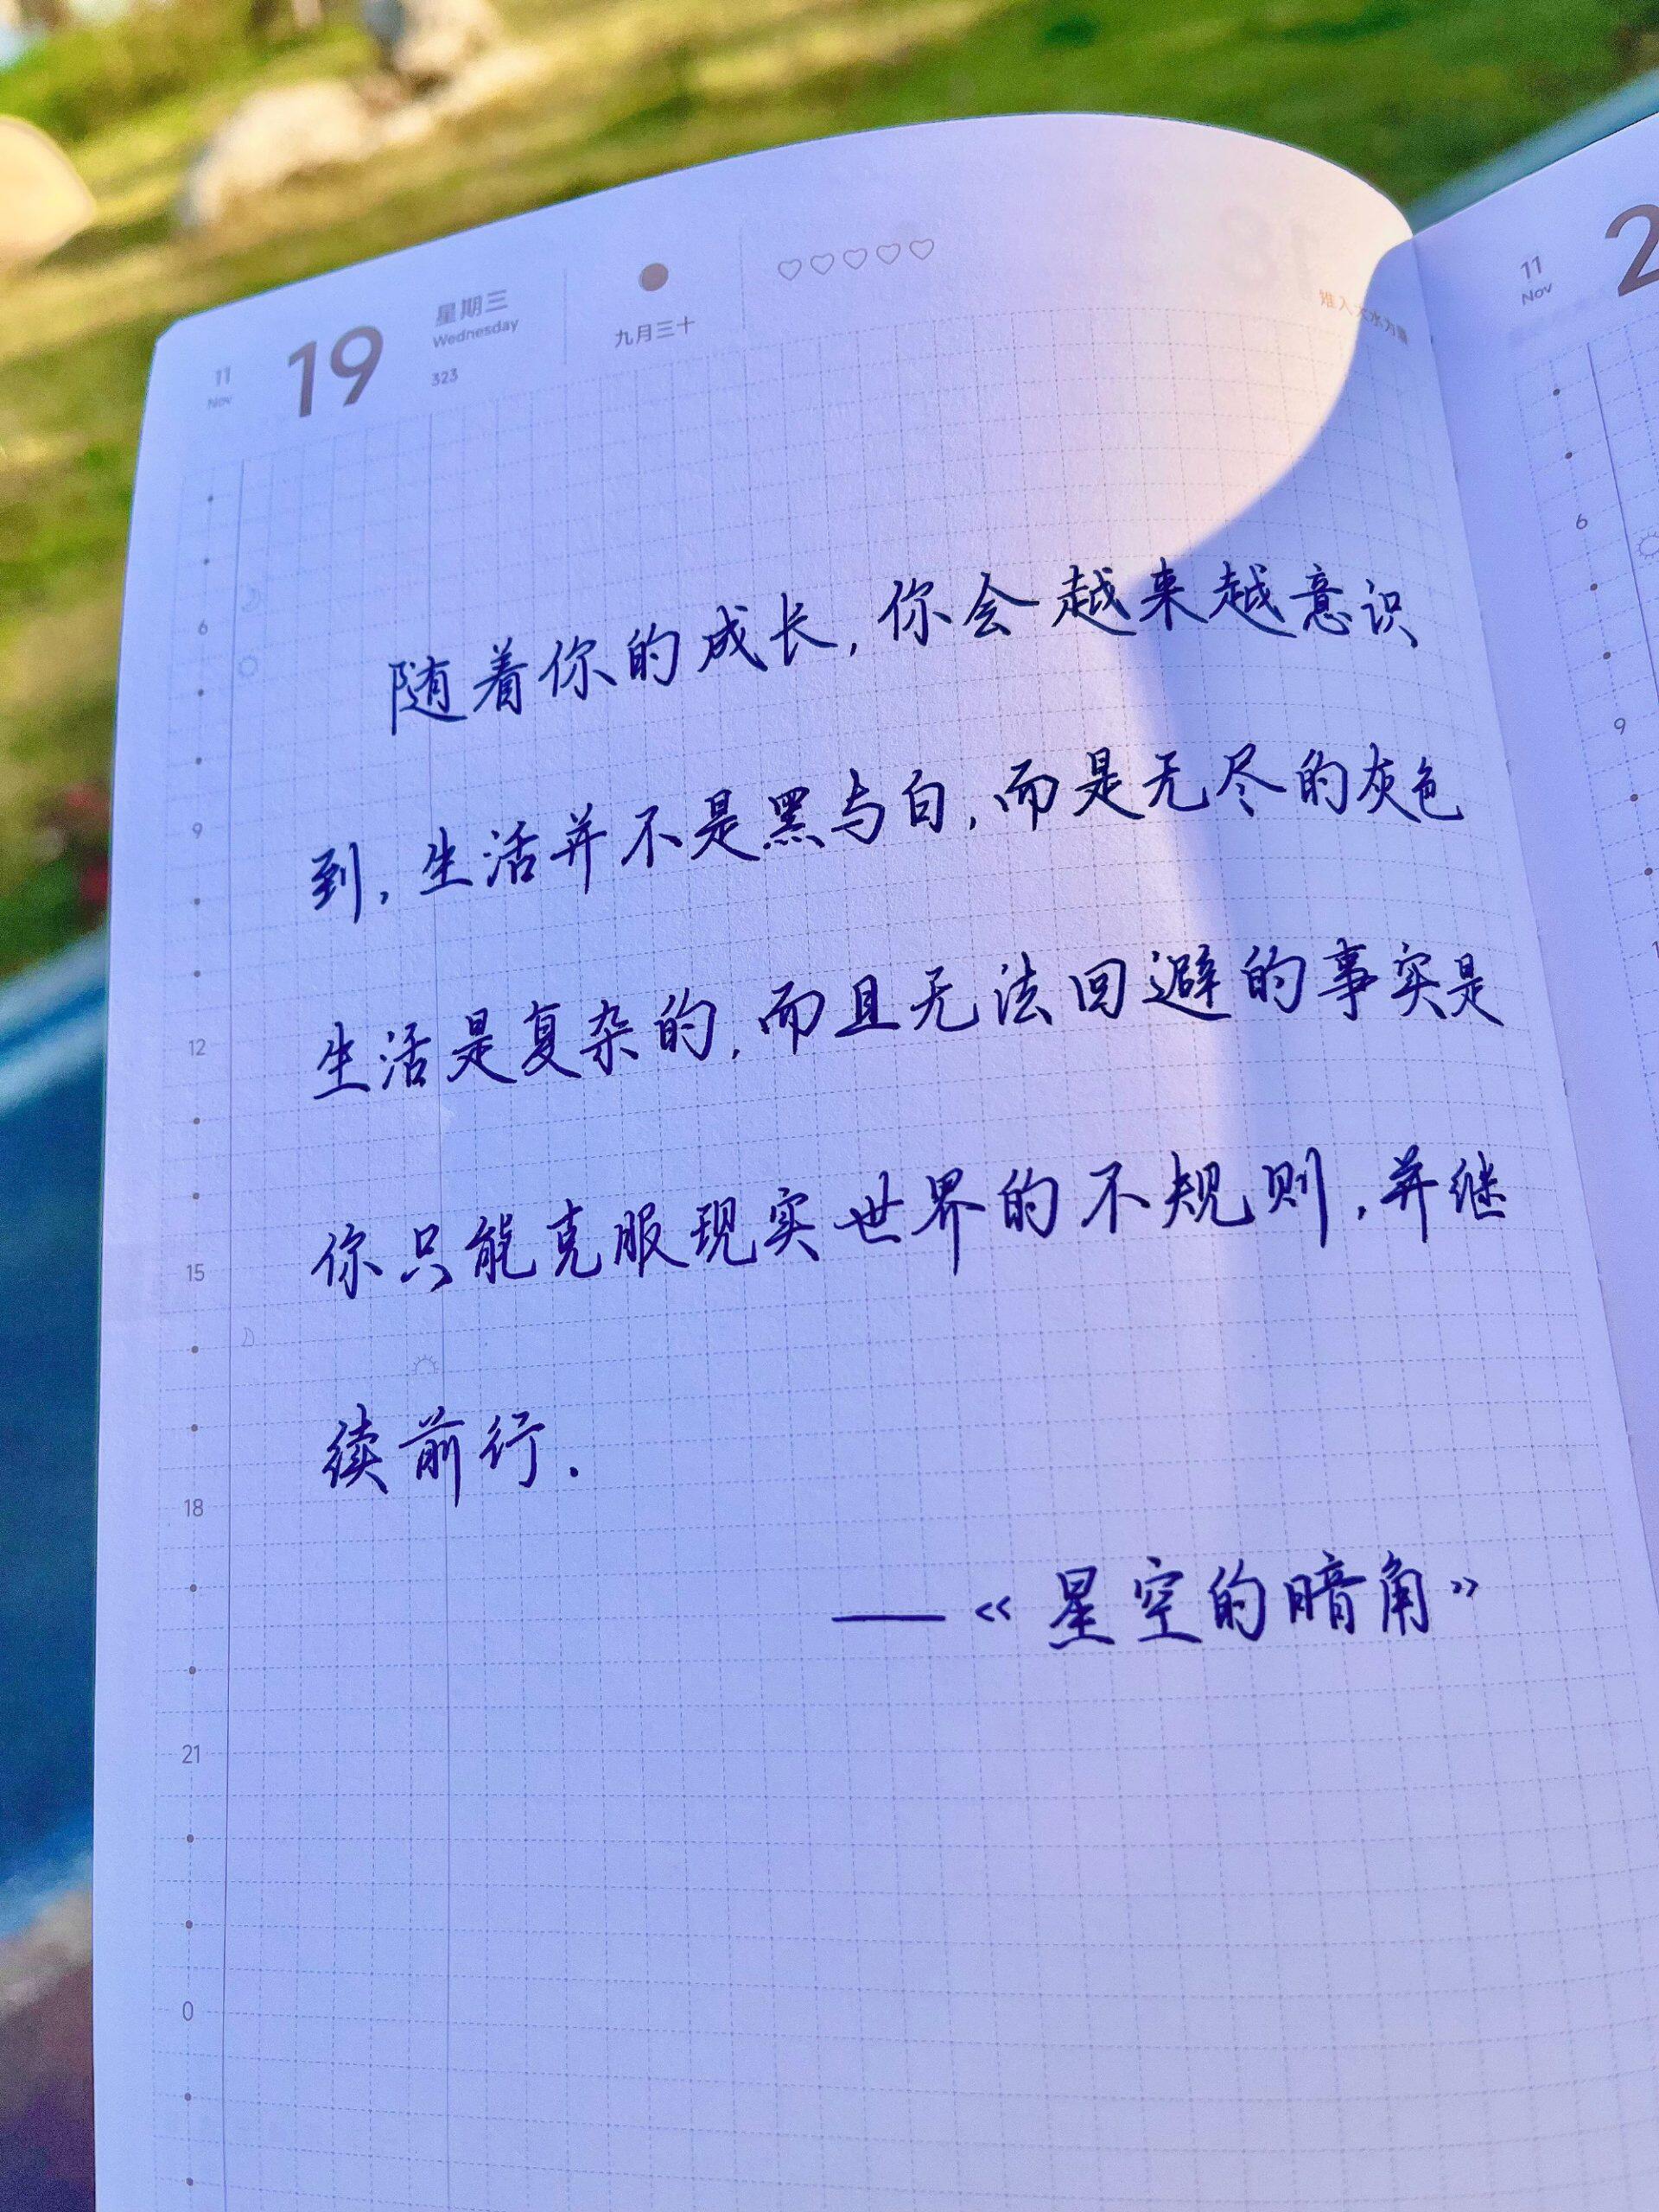 11
Nov
19
星期三
Wednesday
323
九月三十
11
Nov
2
随着你的成长,你会越来越意识
到,生活并不是黑与白,而是无尽的灰色
生活是复杂的,而且无法回避的事实是
你只能克服现实世界的不规则,并继
续前行.
——《星空的暗角》
6
9
12
15
18
21
0
6
9